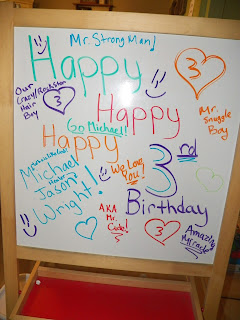 Mr. Strong Man!
Happy
3
Our
Crazy/Rockstar
Hair
Boy
3
Happy
Mr.
Snuggle
Boy
Go Michael!
Happy
Michael
Jason
Wright!
We Love
You!
3rd
Birthday
AKA
Mr.
Cute!
3
Amazing
Miracle